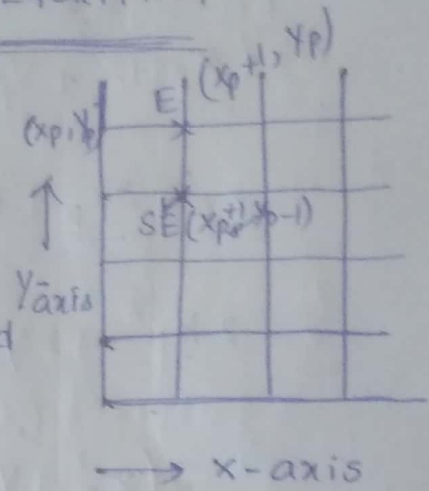 (xp+1, Yp)
E
(xp, Yp
SE (xp+1, Yp-1)
Y-axis
x-axis